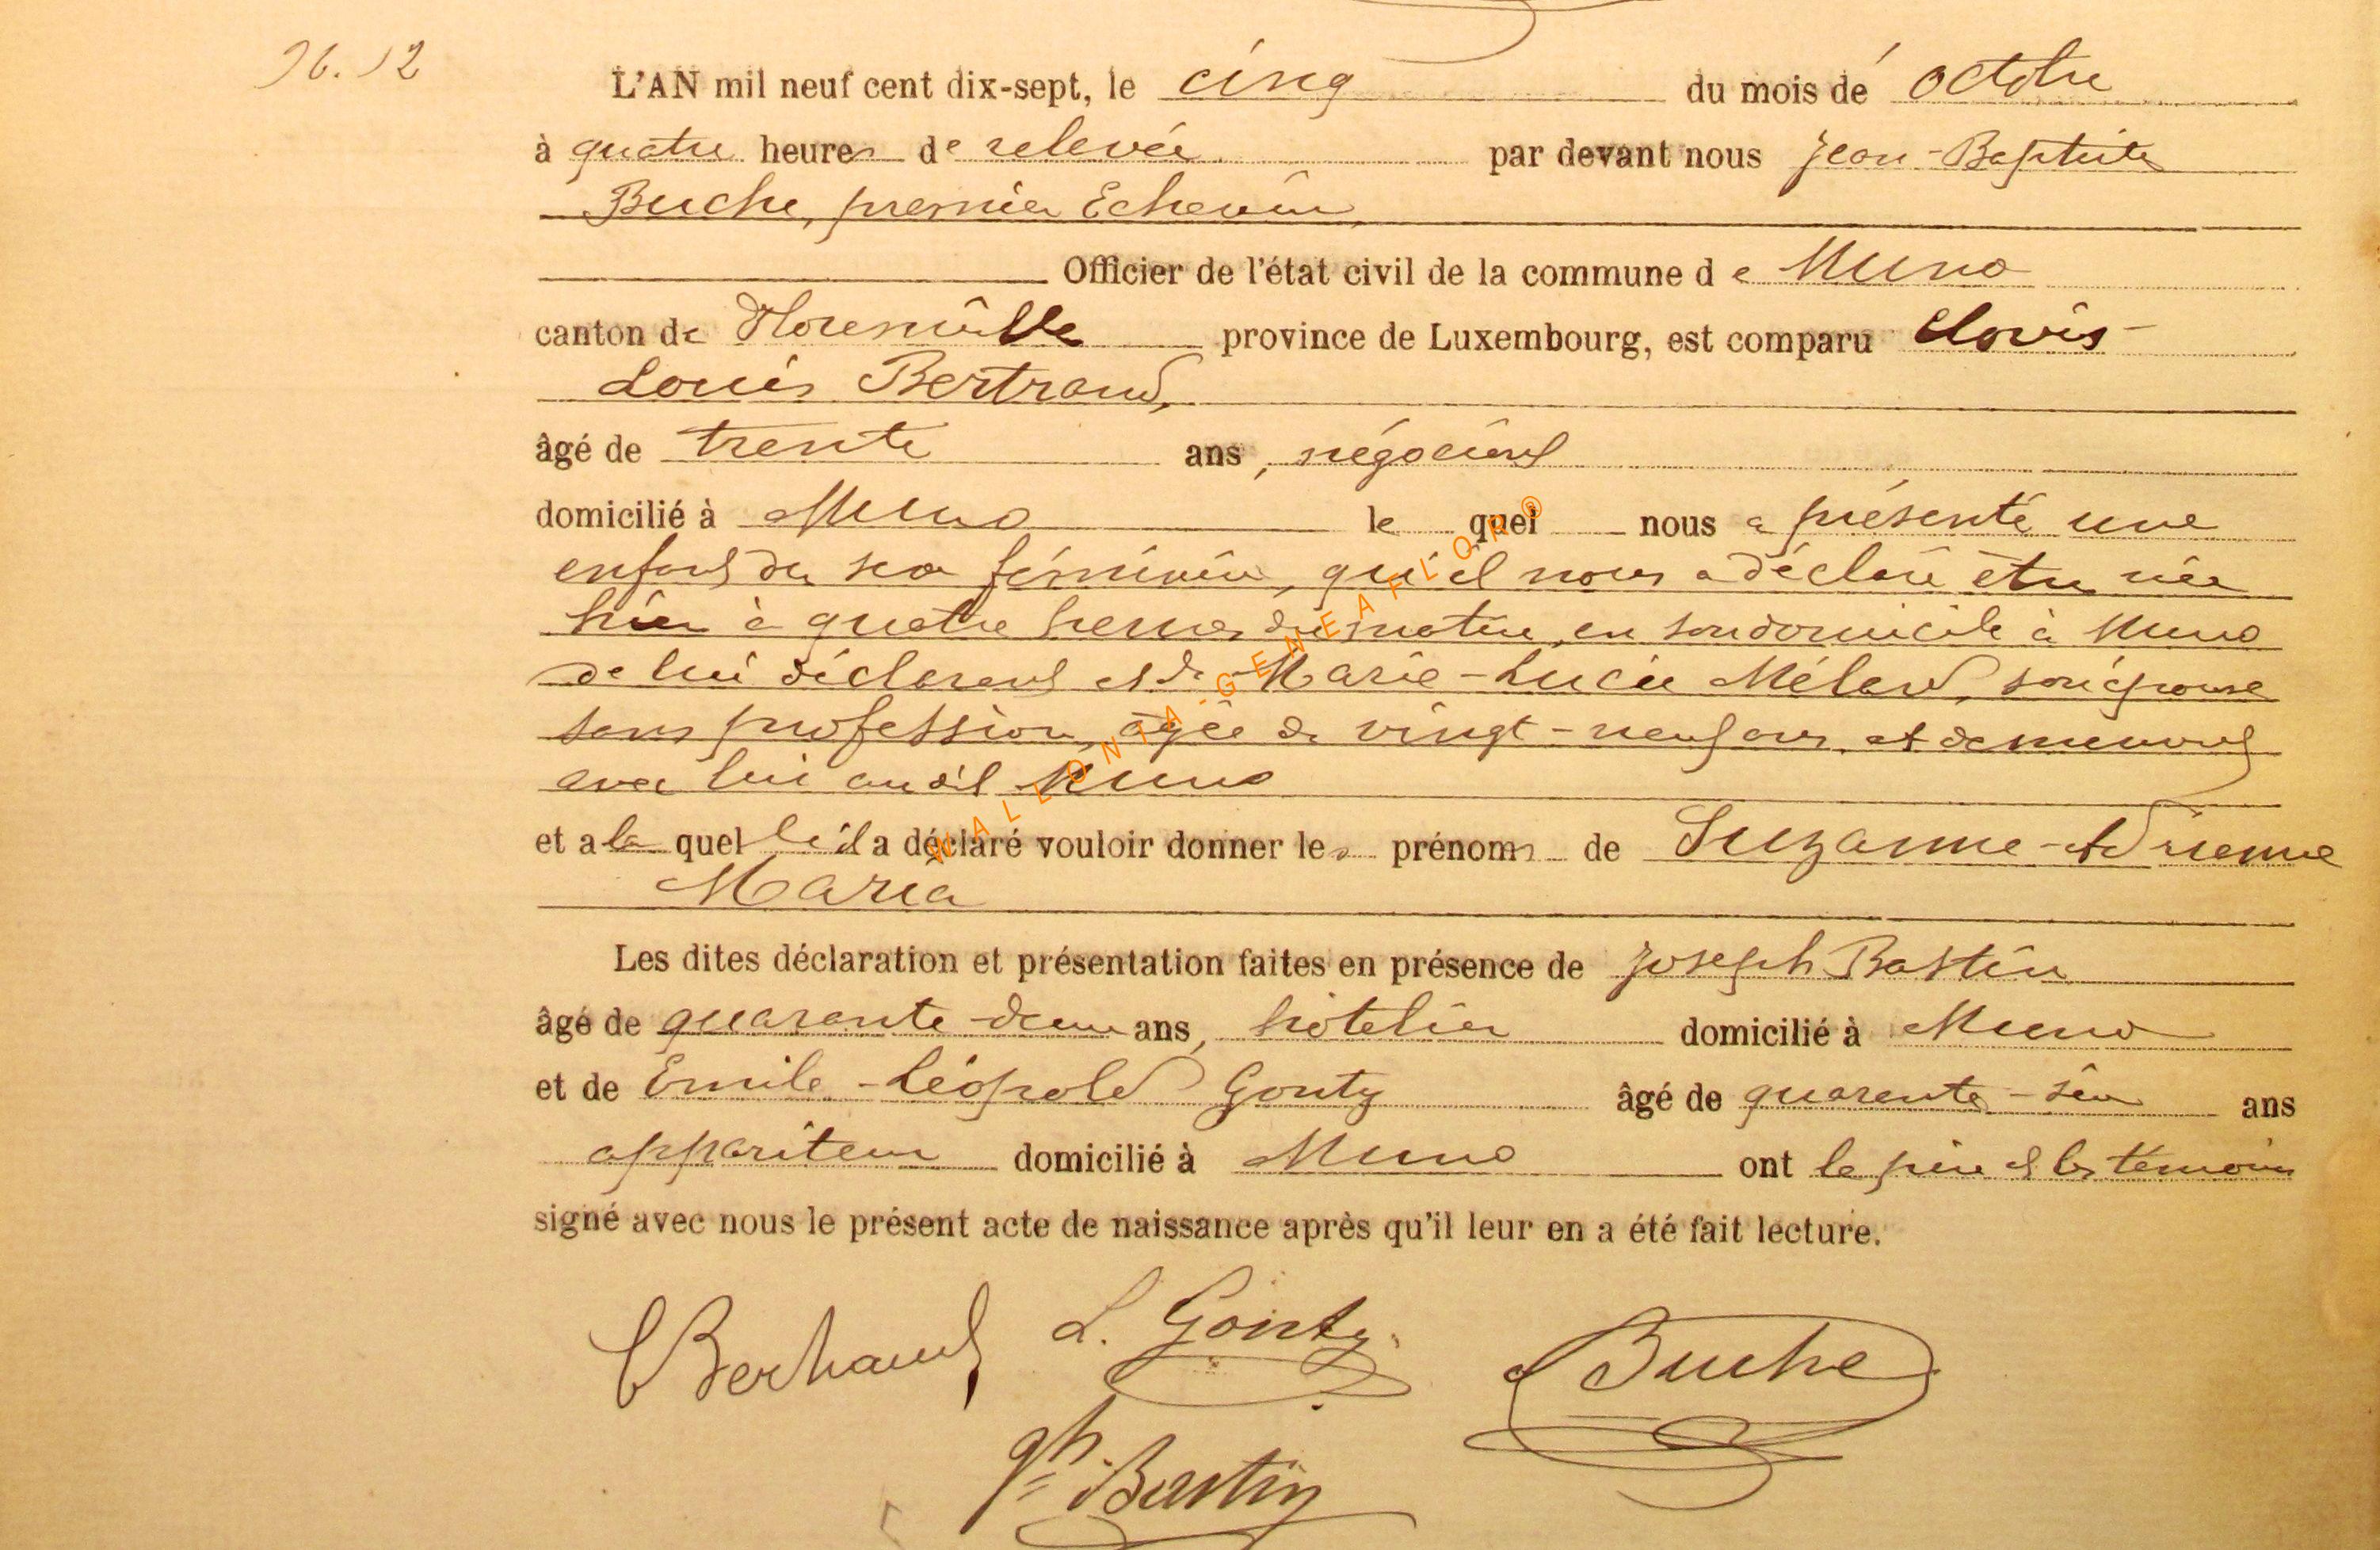 N. 12
L'AN mil neuf cent dix-sept, le cinq du mois de octobre
à quatre heures de relevée par devant nous Jean-Baptiste
Buche, premier Echevin
Officier de l'état civil de la commune de Muno
canton de Florenville province de Luxembourg, est comparu Clovis-
Louis Bertrand,
âgé de trente ans, négociant
domicilié à Muno lequel nous a présenté une
enfant du sexe féminin, qu'il nous a déclaré être née
hier à quatre heures du matin, en son domicile à Muno
de lui déclarant et de Marie-Lucie Mélard, son épouse
sans profession, âgée de vingt-neuf ans et demeurant
avec lui audit Muno
et a laquelle il a déclaré vouloir donner les prénoms de Suzanne-Adrienne
Maria
Les dites déclaration et présentation faites en présence de Joseph Bastin
âgé de quarante-deux ans, hôtelier domicilié à Muno
et de Emile-Léopold Gonty âgé de quarante-six ans
appariteur domicilié à Muno ont le père et les témoins
signé avec nous le présent acte de naissance après qu'il leur en a été fait lecture.
C Bertrand L. Gonty Buche
Jh Bastin
WALLONIA-GENEAFLOR®